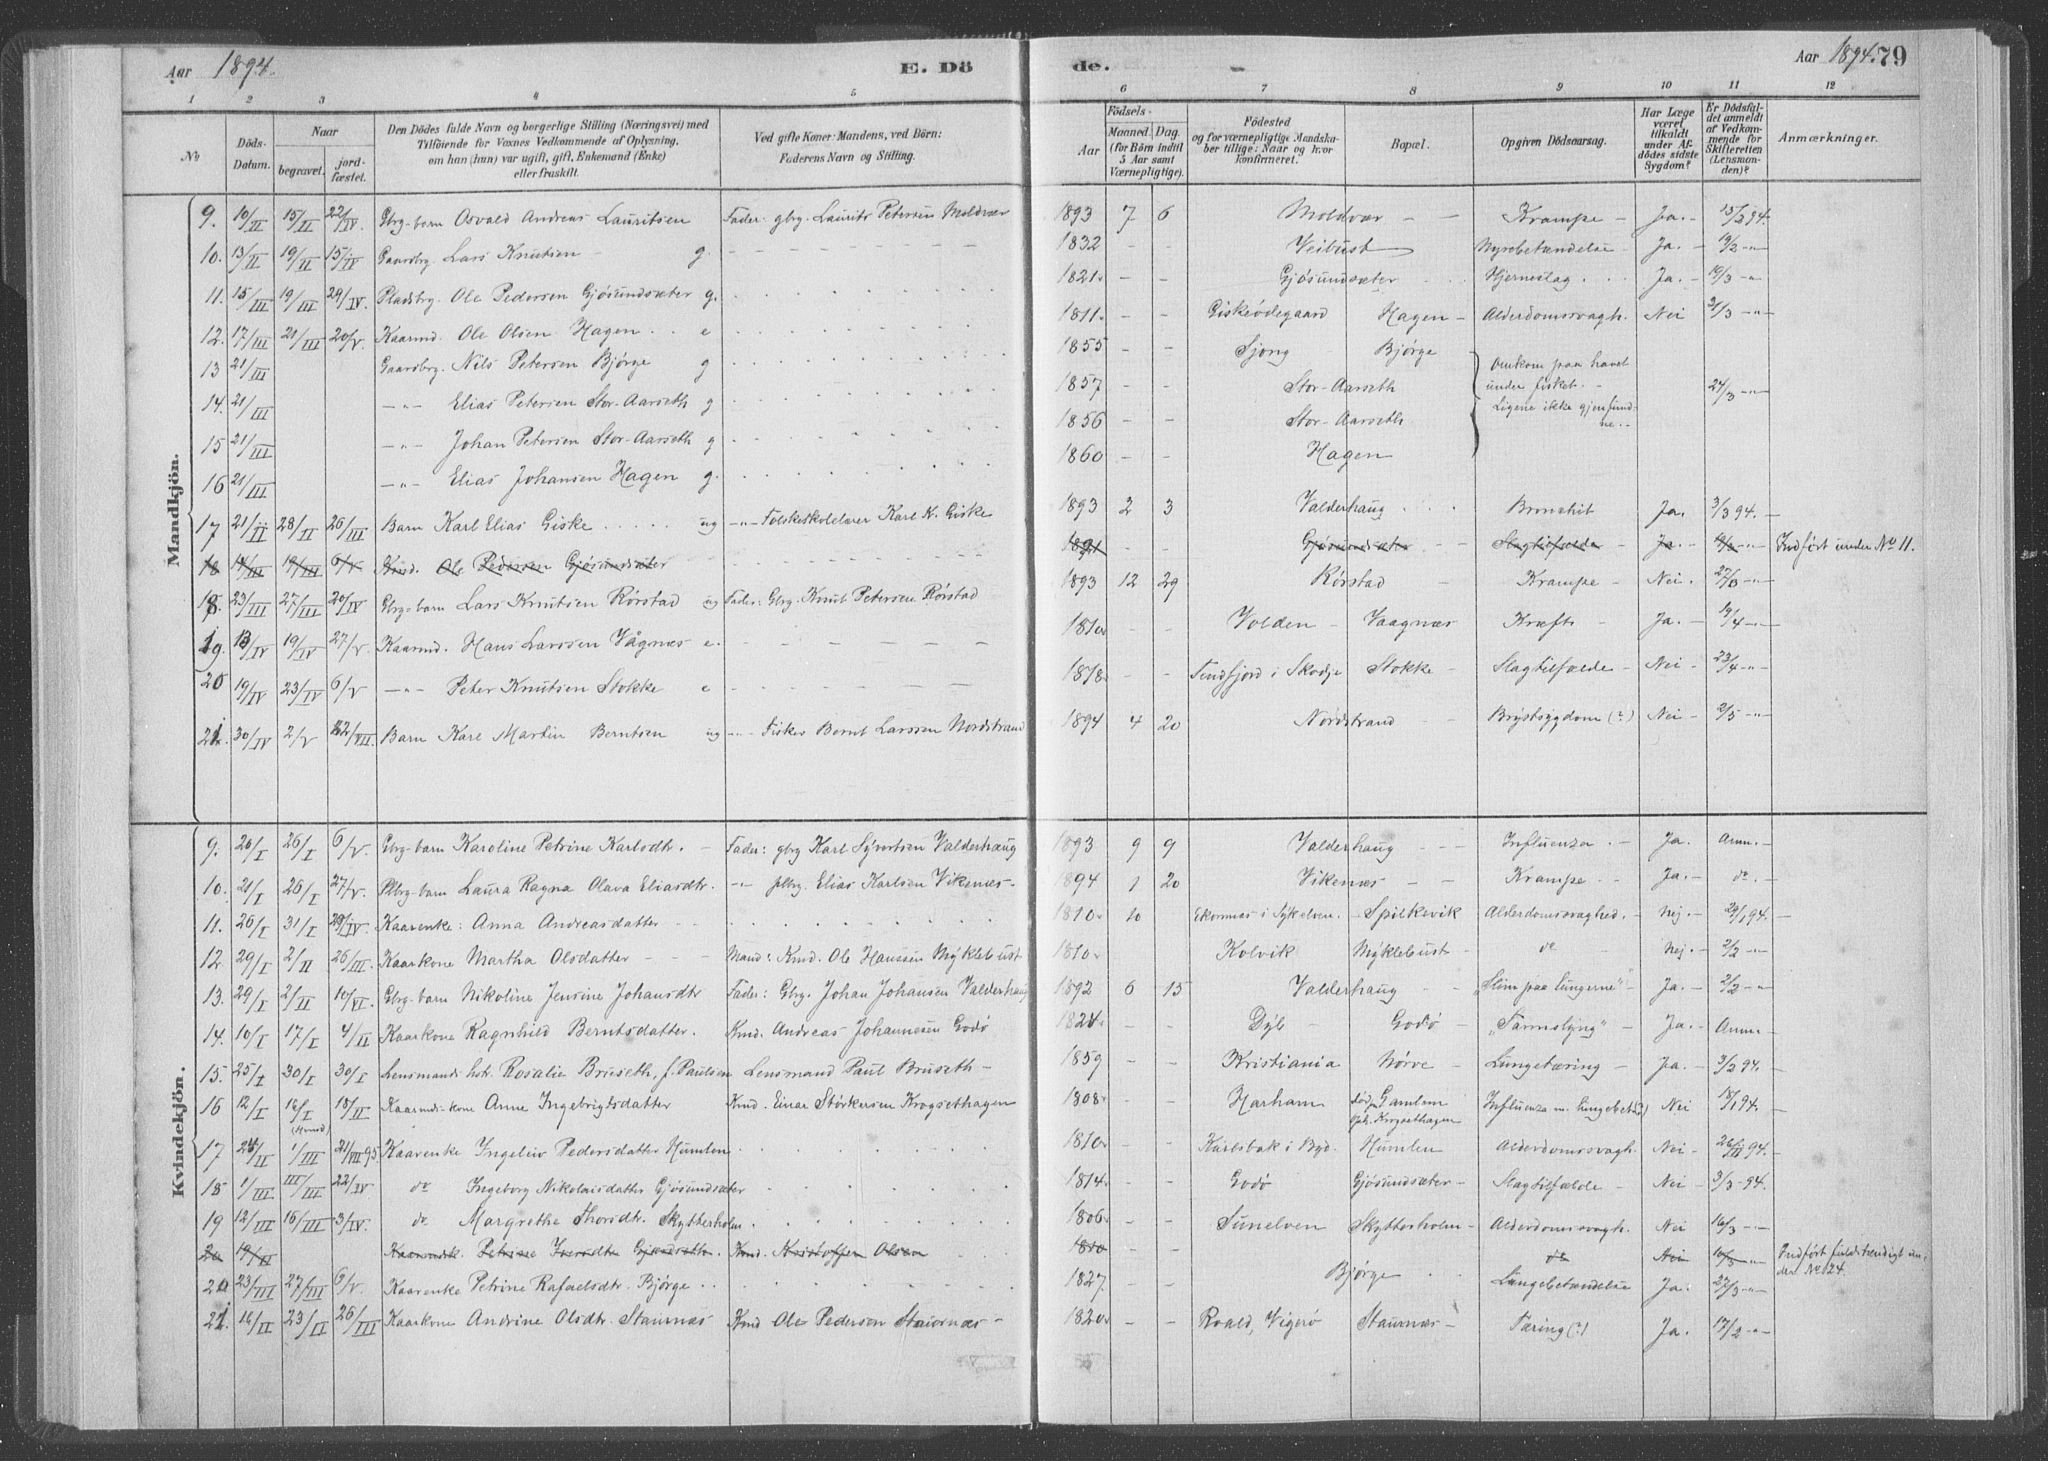 Aar 1894.
E. Dö
de.
Aar 1894. 79
1 2 3 4 5 6 7 8 9 10 11 12
No
Döds-Datum.
Naar
begravet.
jordfæstet.
Den Dödes fulde Navn og borgerlige Stilling (Næringsvei) med
Tilföiende for Voxnes Vedkommende af Oplysning,
om han (hun) var ugift, gift, Enkemand (Enke)
eller fraskilt.
Ved gifte Koner: Mandens, ved Börn:
Faderens Navn og Stilling.
Födsels-
Aar
Maaned. Dag.
(for Börn indtil
5 Aar samt
Værnepligtige).
Födested
og for værnepligtige Mandska-
ber tillige: Naar og hvor
konfirmeret.
Bopæl.
Opgiven Dödsaarsag.
Har Læge
været
tilkaldt
under Af-
dödes sidste
Sygdom?
Er Dödsfal-
det anmeldt
af Vedkom-
mende for
Skifteretten
(Lensmon-
den)?
Anmærkninger.
Mandkjön.
9. 10/III 15/II 22/IV. Gbrg-barn Osvald Andreas Lauritsen Fader: gbrg. Laurits Petersen Moldvær 1893 7 6 Moldvær – – Krampe – Ja. – 15/2 94.
10. 13/II 19/II 15/IV Gaardbrg. Lars Knutsen g. 1832 – – Veibust Nyrebetændelse – Ja – 19/2 -"-
11. 15/III 19/III 29/IV. Pladsbrg. Ole Pedersen Gjøsundsæter g. 1821. – – Gjøsundsæter Hjerneslag Ja. – 19/3 -"-
12. 17/III 21/III 20/V. Kaarmd. Ole Olsen Hagen e 1811. – – Giskeødegaard Hagen – Alderdomssvagh. Nei 21/3 -"-
13 21/III Gaardbrg. Nils Petersen Bjørge g 1855 – – Sjong Bjørge Omkom paa havet
14. 21/III -"- Elias Petersen Stor-Aarseth g 1857. – – Stor-Aarseth under fisket. 24/3 -"-
15 21/III -"- Johan Petersen Stor-Aarseth g 1856 – – Stor-Aarseth Ligene ikke gjenfund-
ne.
16 21/III -"- Elias Johansen Hagen g. 1860 – – Hagen
17 21/II 28/II 26/III Barn Karl Elias Giske ug -"- Folkeskolelærer Karl K. Giske 1893 2 3 Valderhaug Bronchit Ja. 3/3 94. –
18 14/III 19/III 6/V Kmd. Ole Pedersen Gjøsundsæter 1821 – – Gjøsundsæter Slagtilfælde Ja – -"- Indført under No 11.
18. 23/III 27/III 20/IV Gbrg-barn Lars Knutsen Rørstad ug Fader: Gbrg. Knut Petersen Rørstad 1893 12 29 Rørstad – Krampe – Nei. 27/3 -"-
19. 13/IV 19/IV 27/V. Kaarmd. Hans Larssen Vågnæs e. 1810. – – Volden – Vaagnæs Kræft – Ja. – 19/4 -"-
20 19/IV 23/IV 6/V -"- Peter Knutsen Stokke e – – i Skodje Stokke – Slagtilfælde – Nei – 23/4 -"-
21. 30/IV 2/V 22/VII. Barn Kare Martin Berntsen ug -"- Fisker Bernt Larssen Nordstrand 1894 4 20 Nordstrand Brystsygdom (?) Nei – 2/5 -"-
Kvindekjön.
9. 20/I 26/I 6/V. Gbrg-barn Karoline Petrine Karlsdtr. – Fader: gbrg Karl Syvertsen Valderhaug 1893 9 9 Valderhaug Influenza – Ja. Anm.
10. 21/I 26/I 27/V. Plbrg-barn Laura Ragna Olava Eliasdtr. -"- plbrg. Elias Karlsen Vikenæs – 1894 1 20 Vikenæs – – Krampe – Ja. – do.
11. 26/I 31/I 29/IV. Kaarenke: Anna Andreasdatter 1810. Ekornnæs i Sykelven. – Spilkevik Alderdomssvaghed. – Nej. – 29/1 94. –
12 29/I 2/II 26/III. Kaarkone Martha Olsdatter Mand: Kmd. Ole Hanssen Myklebust 1810. Kolvik Myklebust – do – Nej. – 2/2 -"-
13. 29/I 2/II 10/VI. Gbrg-barn Nikoline Jensine Johansdtr Fader: Gbrg. Johan Johansen Valderhaug 1892 6 15 Valderhaug „Slim paa Lungerne" – Ja. – 2/2 -"-
14. 10/I 17/I 4/II Kaarkone Ragnhild Berntsdatter. Kmd. Andreas Johannesen Godø – – Dyb – Godø – „Tarmslyng" – Ja – Anm. –
15. 25/I 30/I 30/I Lensmands hst. Rosalie Bruseth, f. Paulsen Lensmand Paul Bruseth – 1859 – – Kristiania Nørve – Lungetæring – Ja. – 3/2 94. –
16 12/I 16/I 18/II Kaarmds-kone Anne Ingebrigtsdatter Kmd. Einar Størkersen Krogsethagen 1808. – – Harham død p. Gamlem Influenza m. lungebet. Nei 18/1 94. –
Krogsethagen
17 24/II 1/III 21/VII 95. Kaarenke Ingeleiv Pedersdatter Humlen 1810. – – i Byd. Humlen Alderdomssvagh. Nei – 26/II 94. –
18 1/III III/III 22/IV do Ingeborg Nikolaisdatter Gjøsundsæter 1814. – – Godø Gjøsundsæter – Slagtilfælde – Nei – 3/3 - 94. –
19 12/III 16/III 3/IV. do Margrethe Thorsdtr. Skytterholm. 1806. – – Sunelven Skytterholm – Alderdomssvagh. Nei 16/3 -"-
20 19/II Petrine Kmd. Kristoffer Olsen 1810 – – do Nei -"- Indført fuldstændigt un-
der No 24.
20 23/III 27/III 6/V. Kaarenke Petrine Rafaelsdtr. Bjørge 1827. – – Bjørge Lungebetændelse Ja. – 27/3 -"-
21. 16/II 23/II 26/III Kaarkone Andrine Olsdtr. Staurnæs Kmd Ole Pedersen Staurnæs – 1820. – – Roald, Vigerø Staurnæs – Tæring (?) Ja. 17/2 -"-